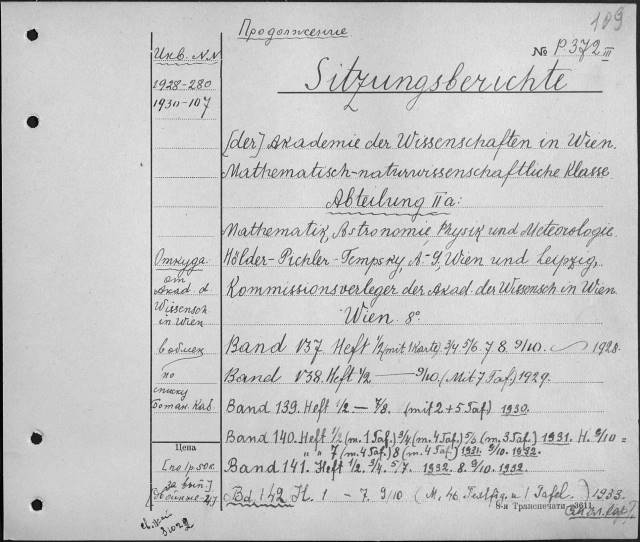 109
Продолжение
№ P372 III
Инв. N.N.
Sitzungsberichte
1928-280
1930-107
[der] Akademie der Wissenschaften in Wien.
Mathematisch-naturwissenschaftliche Klasse
Abteilung IIa:
Mathematik, Astronomie, Physik und Meteorologie
Откуда
Hölder-Pichler-Tempsky, A-G, Wien und Leipzig,
от
Akad. d
Kommissionsverleger der Akad. der Wissensch in Wien.
Wissensch
in Wien
Wien 8°
в обмен
Band 137 Heft 1/2 (mit 1 Karte) 3/4 5/6 7 8 9/10. — 1928
по
Band 138. Heft 1/2 — 9/10. (Mit 7 Taf) 1929.
списку
Ботан. Каб.
Band 139. Heft 1/2 — 7/8. (mit 2 + 5 Taf.) 1930.
Band 140. Heft 1/2 (m. 1 Taf.) 3/4 (m. 4 Taf.) 5/6 (m. 3 Taf.) 1931. H. 9/10 =
Цена
" " 7 (m. 4 Taf.) 8 (m. 4 Taf.) 1931. 9/10. 1932.
[по 1 р. 50 к.
Band 141. Heft 1/2. 3/4. 5/7. 1932. 8. 9/10. 1932.
за вып.]
Bd. 142 H. 1 — 7. 9/10 (M. 46 Textfig. u 1 Tafel.) 1933.
8-я Транспечати 3611